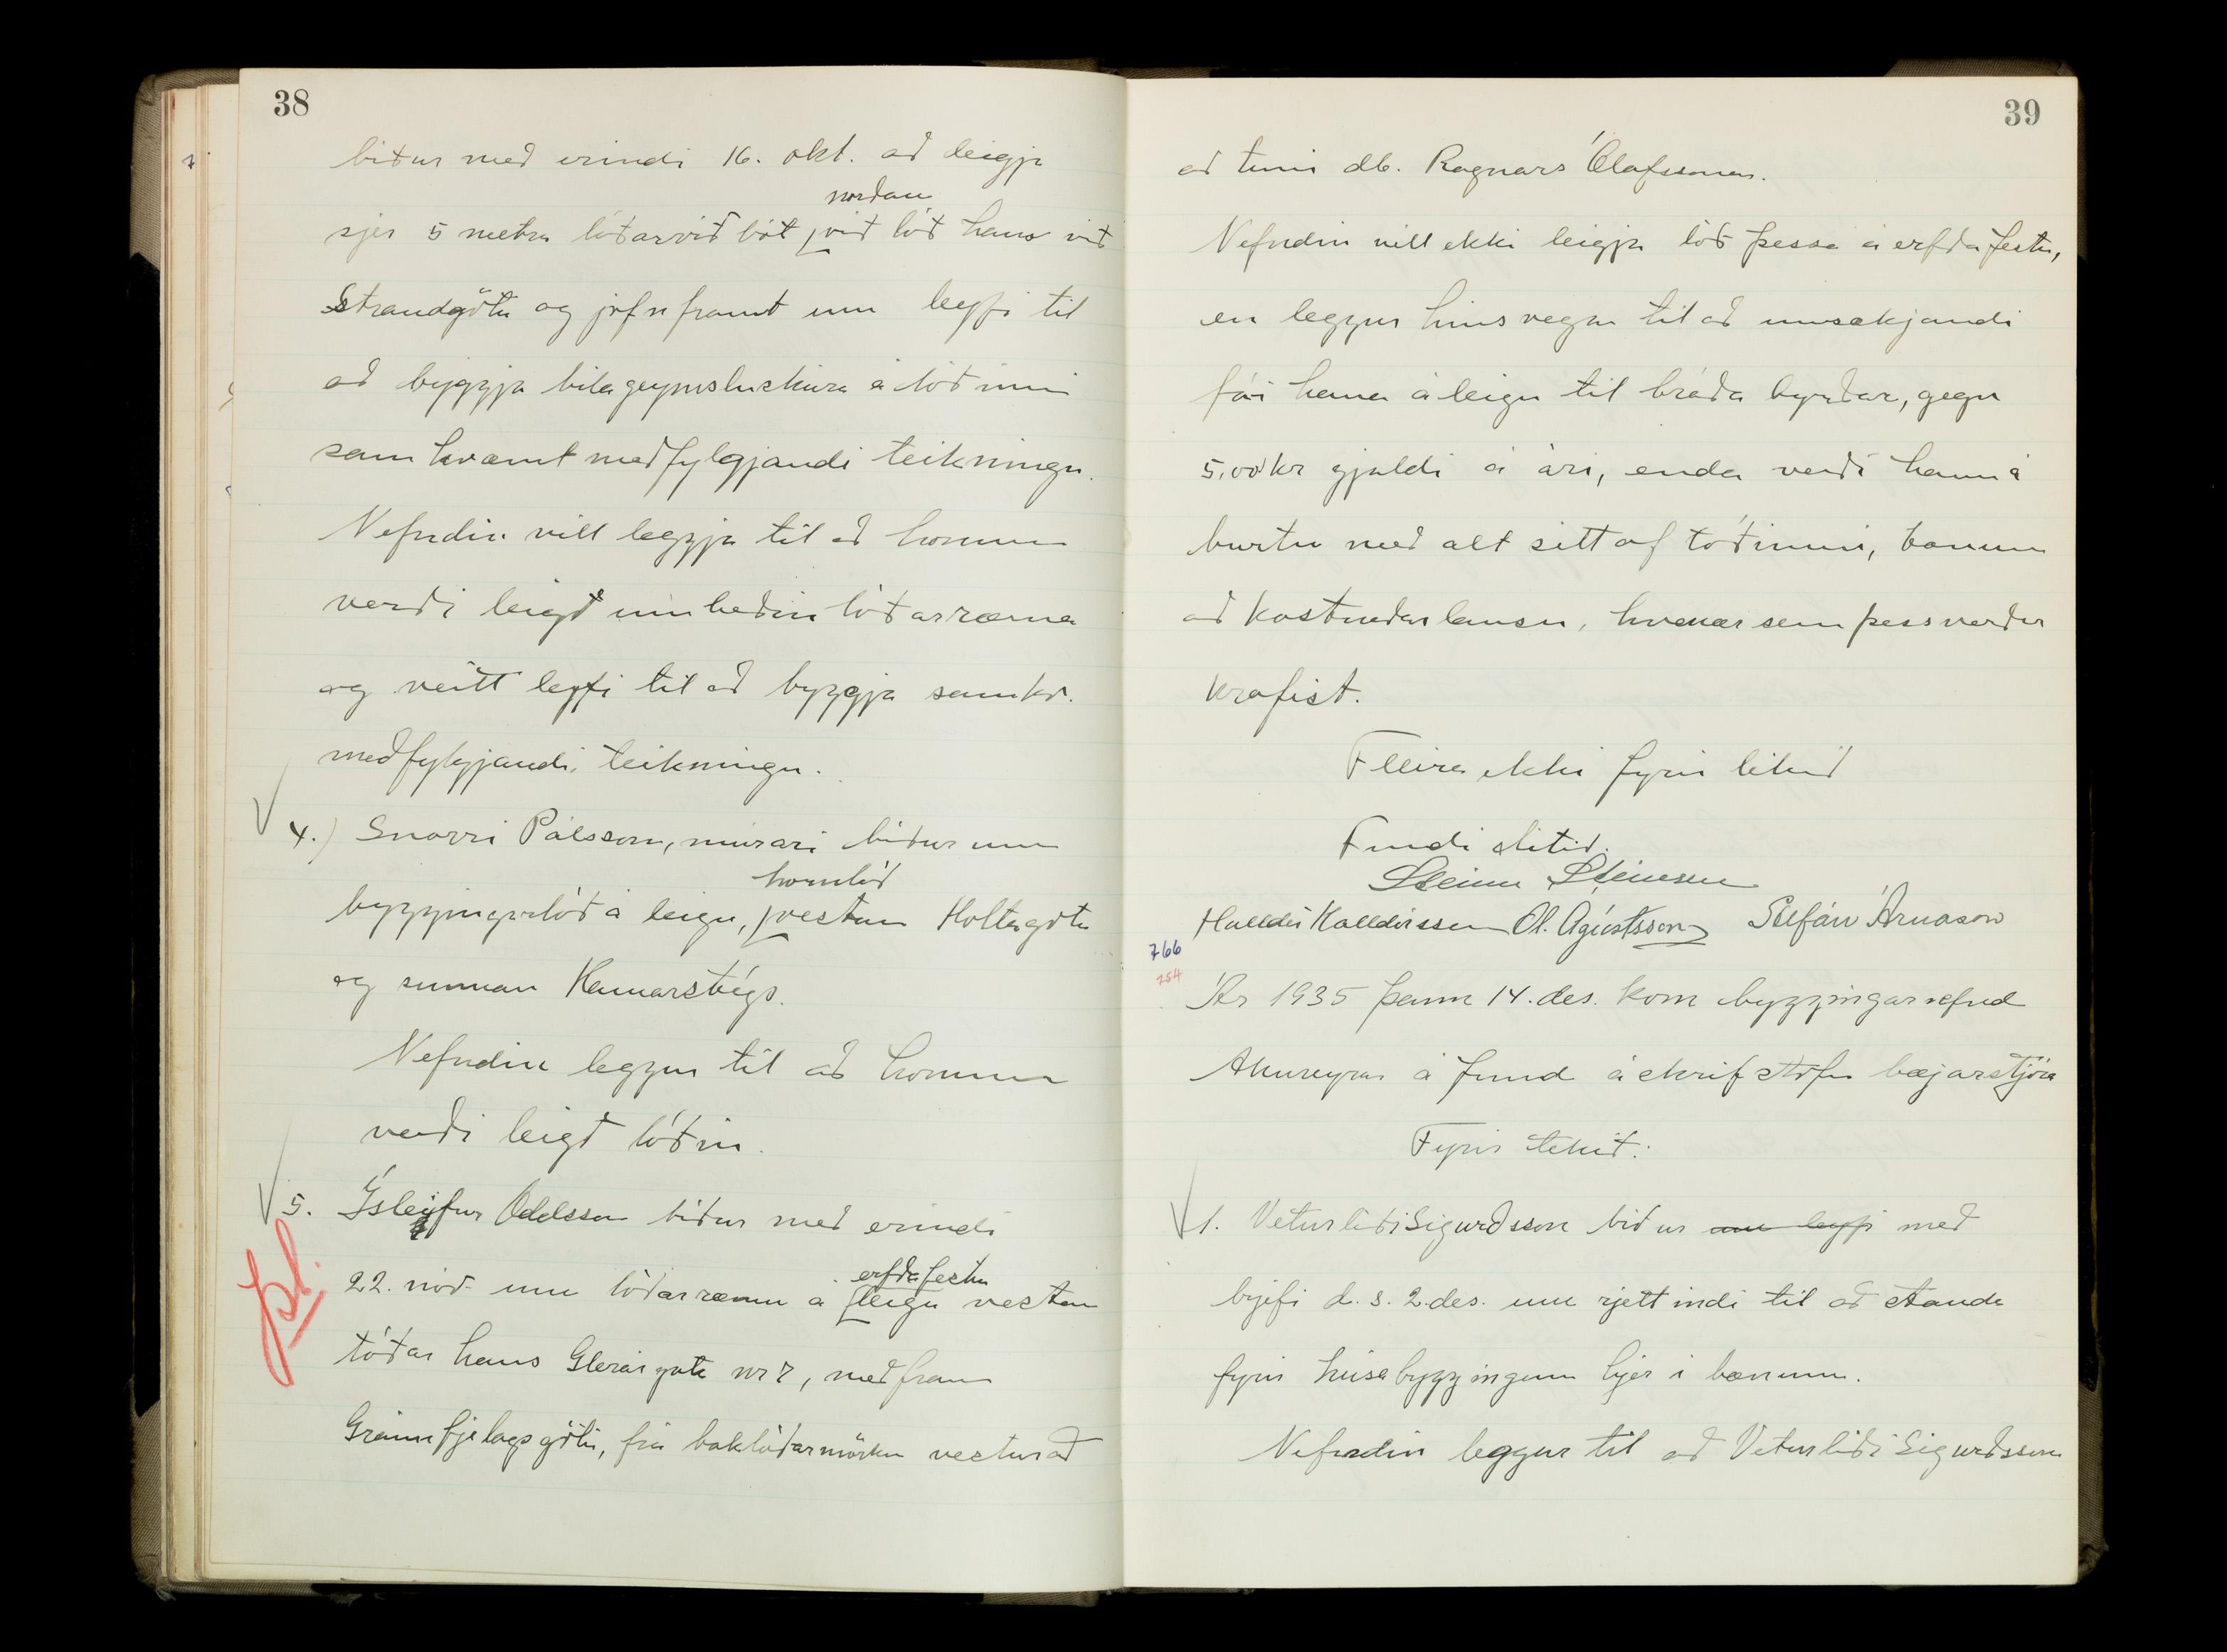 38
biður með erindi 16. okt. að leigja
norðan
sjer 5 metra lóðarviðbót við lóð hans við
Strandgötu og jafnframt um leyfi til
að byggja bilageymsluskúra á lóðinni
samkvæmt meðfylgjandi teikningu.
Nefndin vill leggja til að honum
verði leigð umbeðin lóðarræma
og veitt leyfi til að byggja samkv.
meðfylgjandi teikningu.
4.) Snorri Pálsson, múrari biður um
hornlóð
byggingarlóð á leigu, vestan Holtagötu
og sunnan Hamarstígs.
Nefndin leggur til að honum
verði leigð lóðin.
5. Ísleifur Oddsson biður með erindi
erfðafestu
22. nóv. um lóðarræmu á leigu vestan
lóðar hans Glerárgata nr 7, meðfram
Gránufjelagsgötu, frá baklóðarmörkum vestur að
39
að túni db. Ragnars Ólafssonar.
Nefndin vill ekki leigja lóð þessa á erfðafestu,
en leggur hins vegar til að umsækjandi
fái hana á leigu til bráðabyrðar, gegn
5,00 kr gjaldi á ári, enda verði hann á
burtu með alt sitt af lóðinni, bænum
að kostnaðarlausu, hvenær sem þess verður
krafist.
Fleira ekki fyrir tekið
Fundi slitið.
Steinn Steinsen
Halldór Halldórsson Ól. Ágústsson Stefán Árnason
766
254
Ár 1935 þann 14. des. kom byggingarnefnd
Akureyrar á fund á skrifstofu bæjarstjóra
Fyrir tekið:
1. Veturliði Sigurðsson biður um leyfi með
brjefi d. s. 2. des. um rjettindi til að standa
fyrir húsabyggingum hjer í bænum.
Nefndin leggur til að Veturliði Sigurðsson